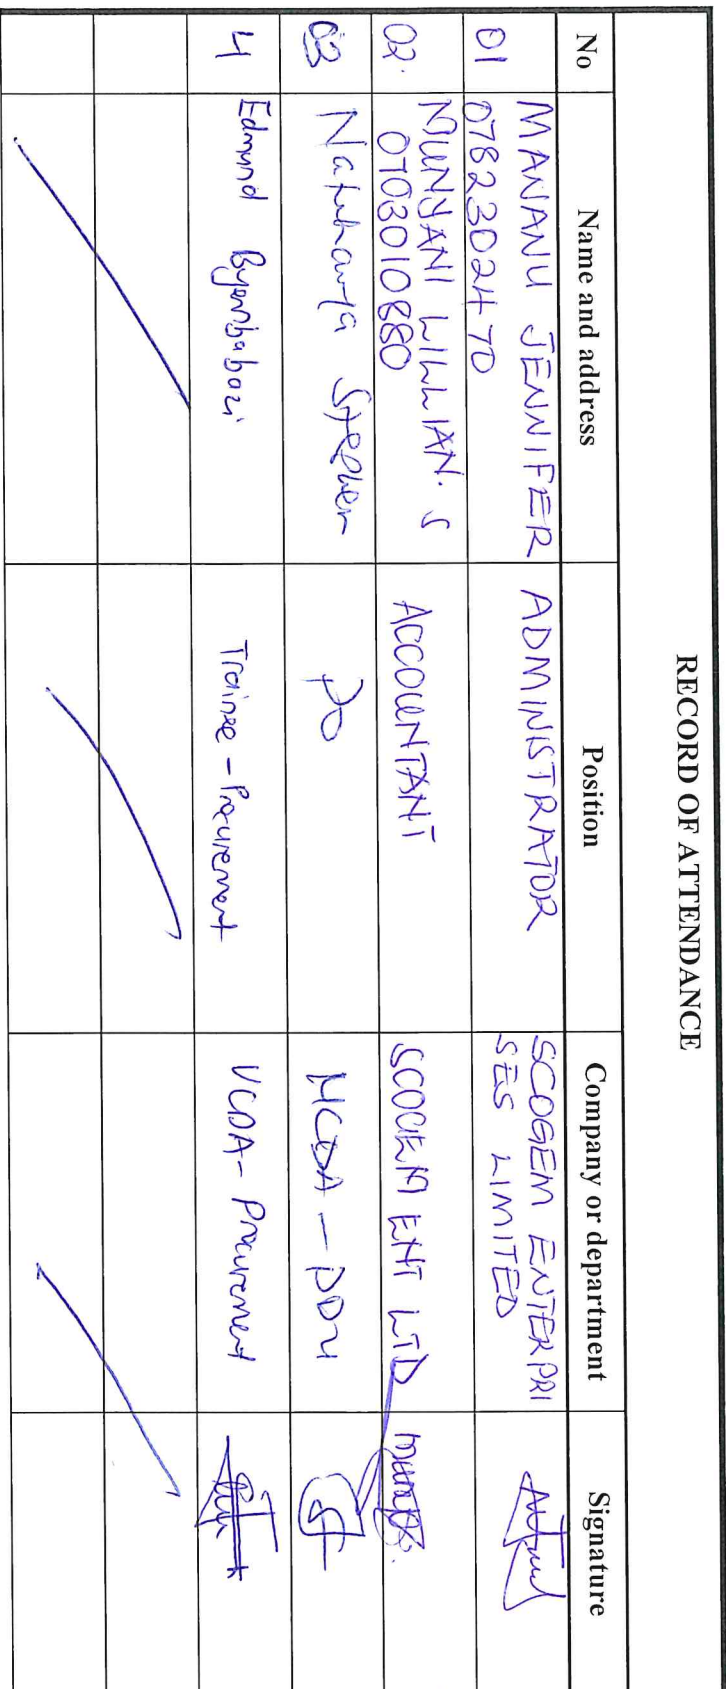 RECORD OF ATTENDANCE
No Name and address Position Company or department Signature
01 MANANU JENNIFER ADMINISTRATOR SCOGEM ENTERPRI
0782302470 SES LIMITED
02. MUNYANI LILLIAN. S ACCOUNTANT SCOGEM ENT LTD
0703010880
03 Stephen PO UCDA - PDU
4 Edmund Byembabazi Trainee - Procurement UCDA - Procurement